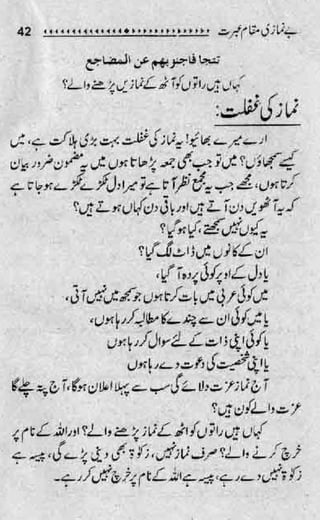 بے نمازی مقام عبرت 42
تتجا فاجنوبهم عن المضاجع
کہاں ہیں راتوں کو اٹھ کے نمازیں پڑھنے والے؟
نماز کی غفلت:
ارے میرے بھائیو! یہ نماز کی غفلت بہت بڑی ہلاکت ہے، میں
کیسے سمجھاؤں؟ میں تو جب بھی جمعہ پڑھاتا ہوں میں یہ مضمون ضرور بیان
کرتا ہوں، مجھے جب یہ مجمع نظر آتا ہے تو میرا دل ٹکڑے ٹکڑے ہو جاتا ہے
کہ یہ آٹھویں دن آتے ہیں اور باقی دن کہاں ہوتے ہیں؟
یہ کیوں نہیں سمجھتے، کیا ہو گیا؟
ان کے کانوں میں ڈاٹ لگ گیا؟
یا دل کے اوپر کوئی پردہ آ گیا،
میں کوئی عربی میں بات کرتا ہوں جو سمجھ میں نہیں آتی،
یا میں کوئی ان سے چندے کا مطالبہ کر رہا ہوں،
یا کوئی اپنی ذات کے لئے سوال کر رہا ہوں
یا اپنی شخصیت کی دعوت دے رہا ہوں
آج نماز عزت دلائے گی سب سے پہلا اعلان ہو گا، آج پتہ چلے گا
عزت والے کون ہیں؟
کہاں ہیں راتوں کو اٹھ کے نماز پڑھنے والے؟ اور اللہ کے نام پر
خرچ کرنے والے؟ صرف نماز نہیں، زکوٰۃ بھی دینی پڑے گی، پیسہ ہے
زکوٰۃ نہیں دے رہے، پیسہ ہے اللہ کے نام پر خرچ نہیں کر رہے۔